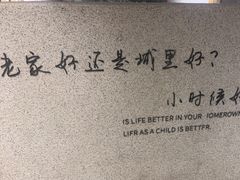 老家好还是城里好？
小时候好
IS LIFE BETTER IN YOUR IOMEROWN
LIFR AS A CHILD IS BETTFR.